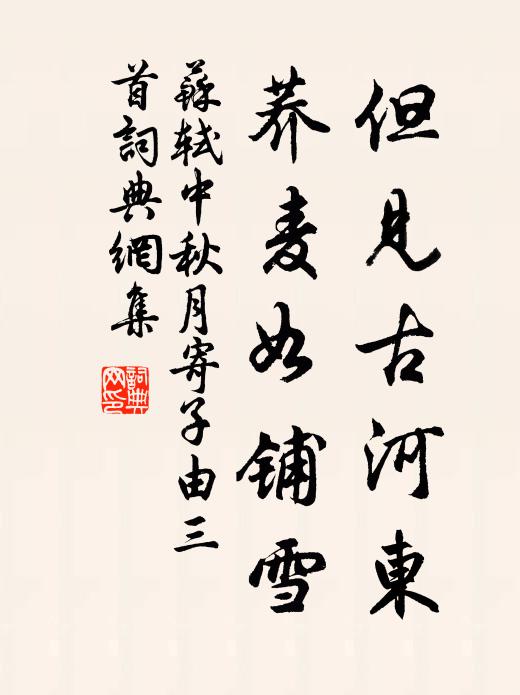 但見古河東
荞麦如铺雪
蘇軾中秋月寄子由三
首詞典網集
詞典
网印